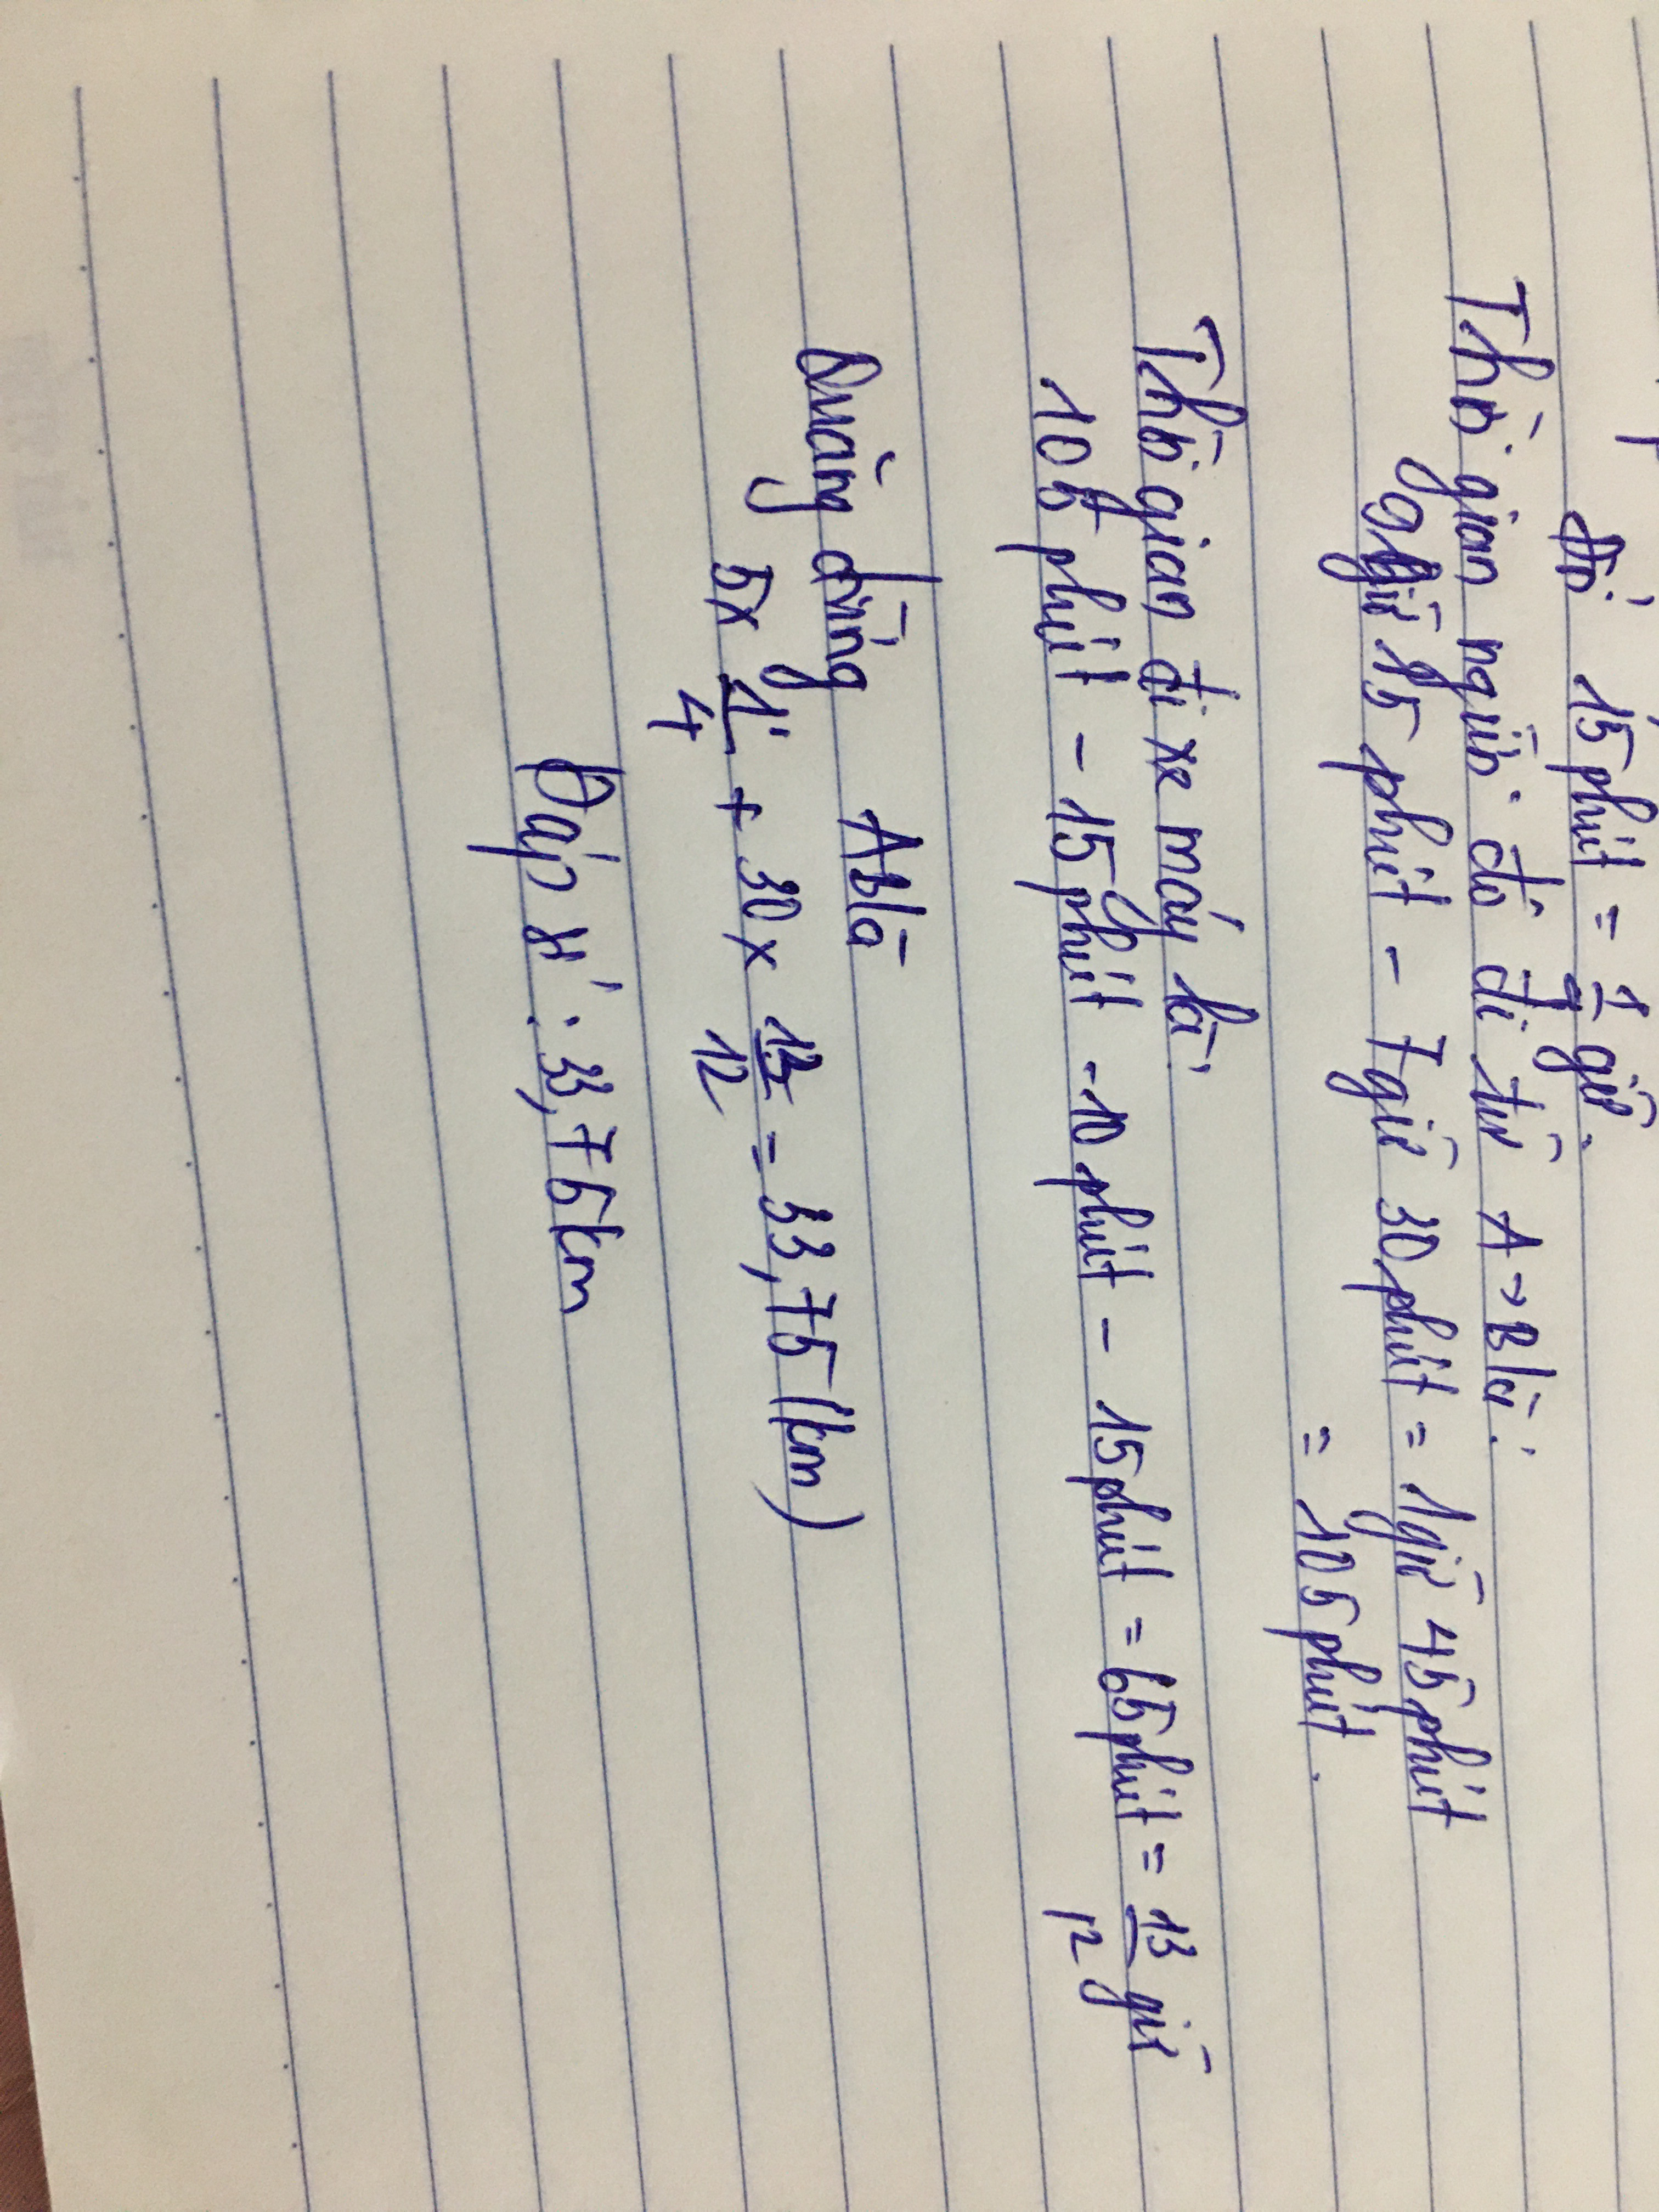 Đổi 15 phút = 1/4 giờ.
Thời gian người đó đi từ A → B là:
9 giờ 15 phút - 7 giờ 30 phút = 1 giờ 45 phút
= 105 phút.
Thời gian đi xe máy là:
105 phút - 15 phút - 10 phút - 15 phút = 65 phút = 13/12 giờ
Quãng đường AB là
5 x 1/4 + 30 x 13/12 = 33,75 (km)
Đáp số : 33,75 km